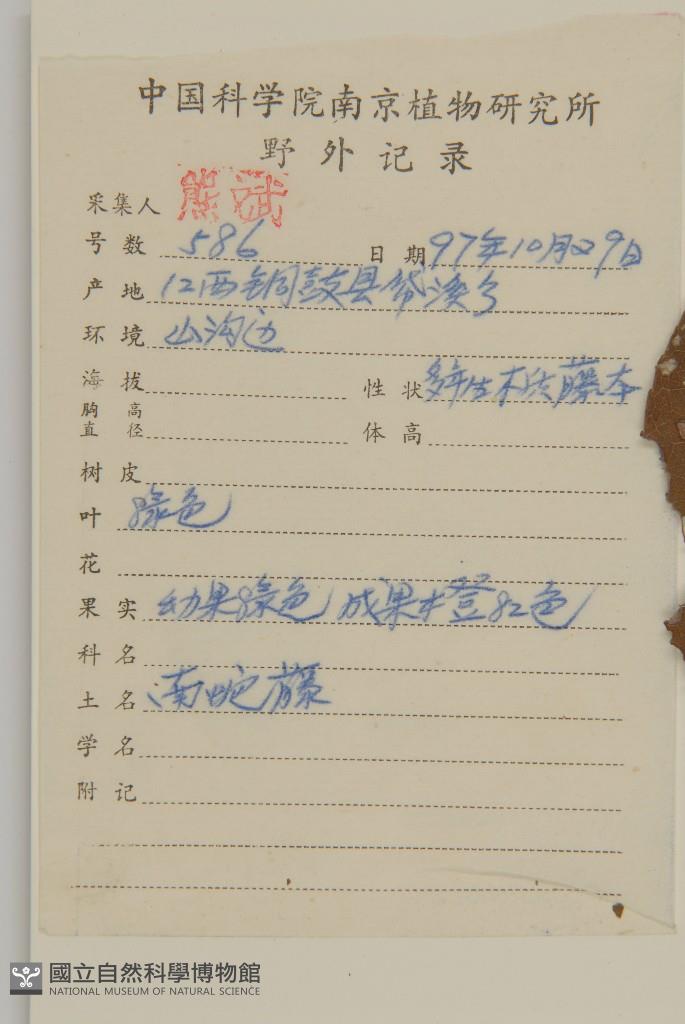 中国科学院南京植物研究所
野外记录
采集人 熊
号数 586 日期 97年10月29日
产地 江西铜鼓县
环境 山沟边
海拔 性状 多年生木质藤本
胸高直径 体高
树皮
叶 绿色
花
果实 幼果绿色 成果橙红色
科名
土名 南蛇藤
学名
附记
國立自然科學博物館
NATIONAL MUSEUM OF NATURAL SCIENCE